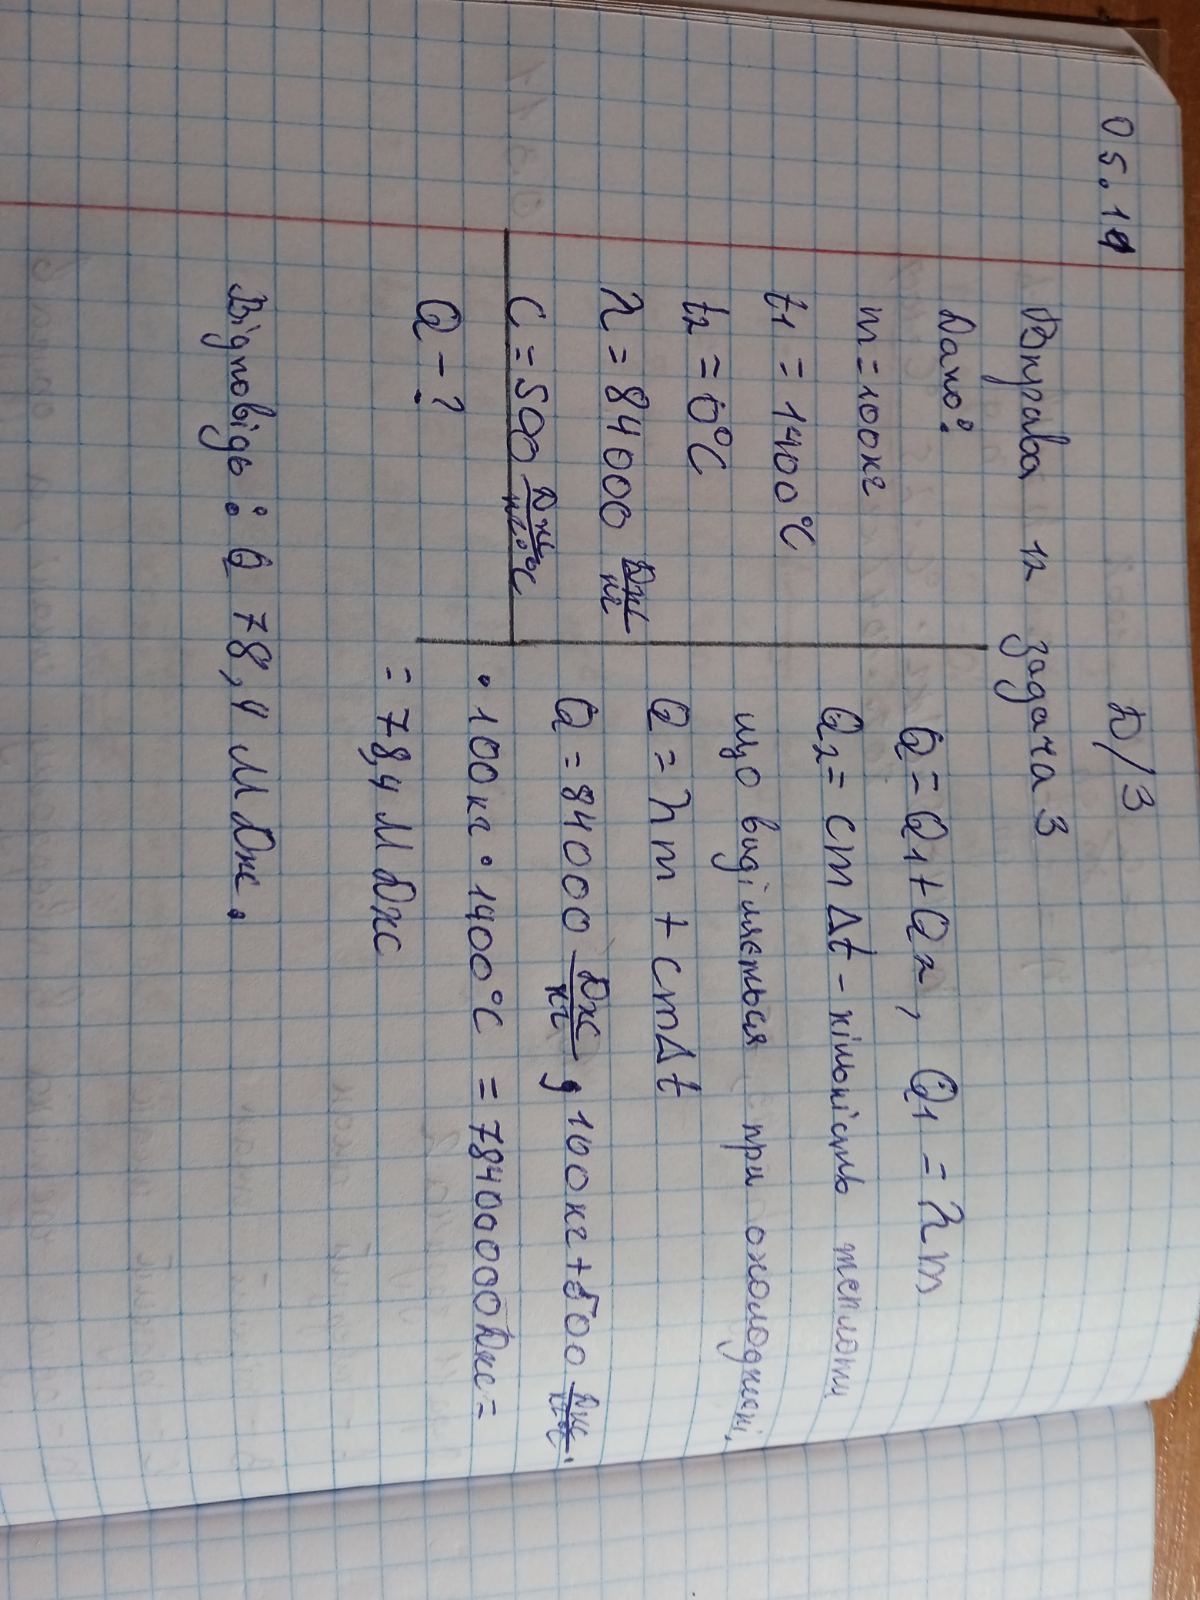 05.11
Д/З
Вправа 12 задача 3
Дано:
m=100кг
t1 = 1400°C
t2 = 0°C
λ = 84000 Дж/кг
C = 500 Дж/кг·°C
Q - ?
Q = Q1 + Q2, Q1 = λm
Q2 = cmΔt - кількість теплоти
що виділяється при охолоджені,
Q = λm + cmΔt
Q = 84000 Дж/кг · 100кг + 500 Дж/кг°C ·
· 100кг · 1400°C = 78400000Дж =
= 78,4 МДж
Відповідь: Q 78,4 МДж.